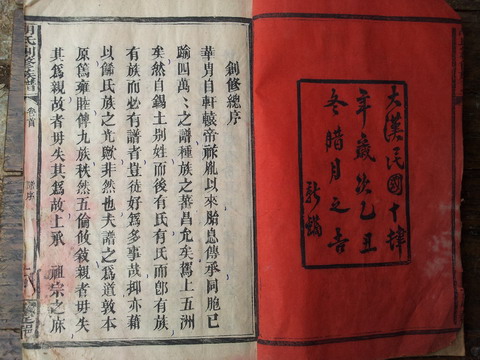 大漢民國十肆
年歲次乙丑
冬腊月之吉
創修總序
華胄自軒轅帝祿胤以來胎息傳承同胞已
踰叫萬〻之譜種族之蕃昌允矣駕上五洲
矣然自錫土别姓而後有氏有氏而卽有族
有族而必有譜者豈徒好爲多事哉抑亦藉
以餙氏族之光歟非然也夫譜之爲道敦本
原篤雍睦俾九族秩然五倫攸敘親者毋失
其爲親故者毋失其爲故上承 祖宗之庥
氏創修族譜
卷首